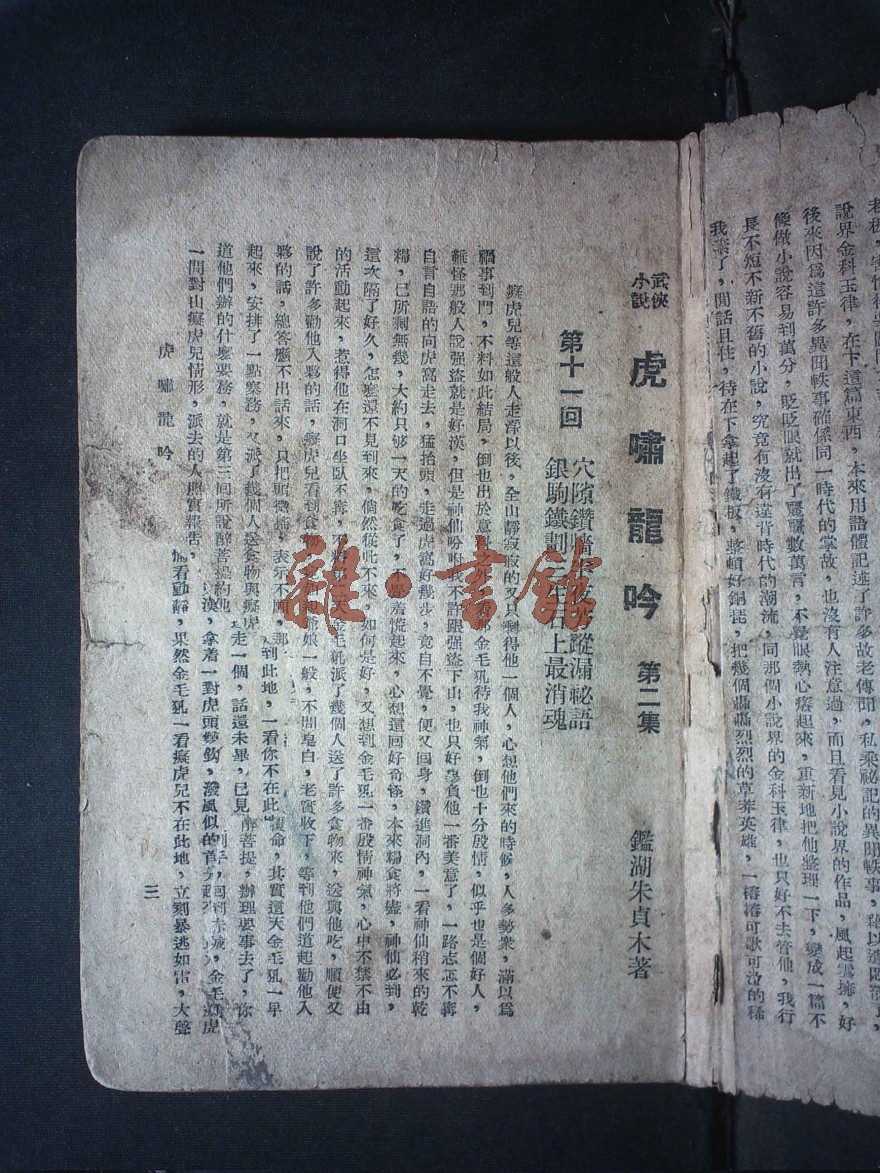 說界金科玉律，在下這篇東西，本來用語體記述了許多故老傳聞，私乘祕記的異聞軼事，
後來因爲這許多異聞軼事確係同一時代的掌故，也沒有人注意過，而且看見小說界的作品，風起雲擁，好
像做小說容易到萬分，眨眨眼就出了龎龎數萬言，不覺眼熱心癢起來，重新地把他整理一下，變成一篇不
長不短不新不舊的小說，究竟有沒有違背時代的潮流，同那個小說界的金科玉律，也只好不去管他，我行
我素了，閒話且住，待在下拿起了鐵板，整頓好銅琵，把幾個轟轟烈烈的草莽英雄，一樁樁可歌可泣的稀
武俠小說
虎嘯龍吟 第二集
鑑湖朱貞木著
第十一回
穴隙鑽 蹤漏祕語
銀駒鐵劃 石上最消魂
癡虎兒等這般人走淨以後，全山靜寂寂的又只剩得他一個人，心想他們來的時候，人多勢衆，滿以爲
禍事到門，不料如此結局，倒也出於意 之外，看那金毛犼待我神氣，倒也十分殷情，似乎也是個好人，
難怪那般人說强盜就是好漢，但是神仙吩咐我不許跟强盜下山，也只好辜負他一番美意了，一路志忑不寗
自言自語的向虎窩走去，猛抬頭，走過虎窩好幾步，竟自不覺，便又回身，鑽進洞內，一看神仙稍來的乾
糧，已所剩無幾，大約只够一天的吃食了，不 着慌起來，心想這回好奇怪，本來糧食將盡，神仙必到，
這次隔了好久，怎麽還不見到來，倘然從此不來，如何是好，又想到金毛犼一番殷情神氣，心中不禁不由
的活動起來，惹得他在洞口坐臥不寗， 天金毛犼派了幾個人送了許多食物來，送與他吃，順便又
說了許多勸他入夥的話，癡虎兒看到食物 爺娘一般，不問皂白，老實收下，等到他們道起勸他入
夥的話，總答應不出話來，只把頭微搖，表示不願，那 到此地，一看你不在此 復命，其實這天金毛犼一早
起來，安排了一點寨務，又派了幾個人送食物與癡虎 走一個，話還未畢，已見 醉菩提，辦理要事去了，你
道他們辦的什麽要務，就是第三回所說醉菩提約他 漢，拿着一對虎頭雙鈎，潑風似的 回到赤城，金毛犼
一問對山癡虎兒情形，派去的人照實報告， 偷看動靜，果然金毛犼一看癡虎兒不在此地，立刻暴逃如雷，大聲
虎嘯龍吟
三
雜·書館